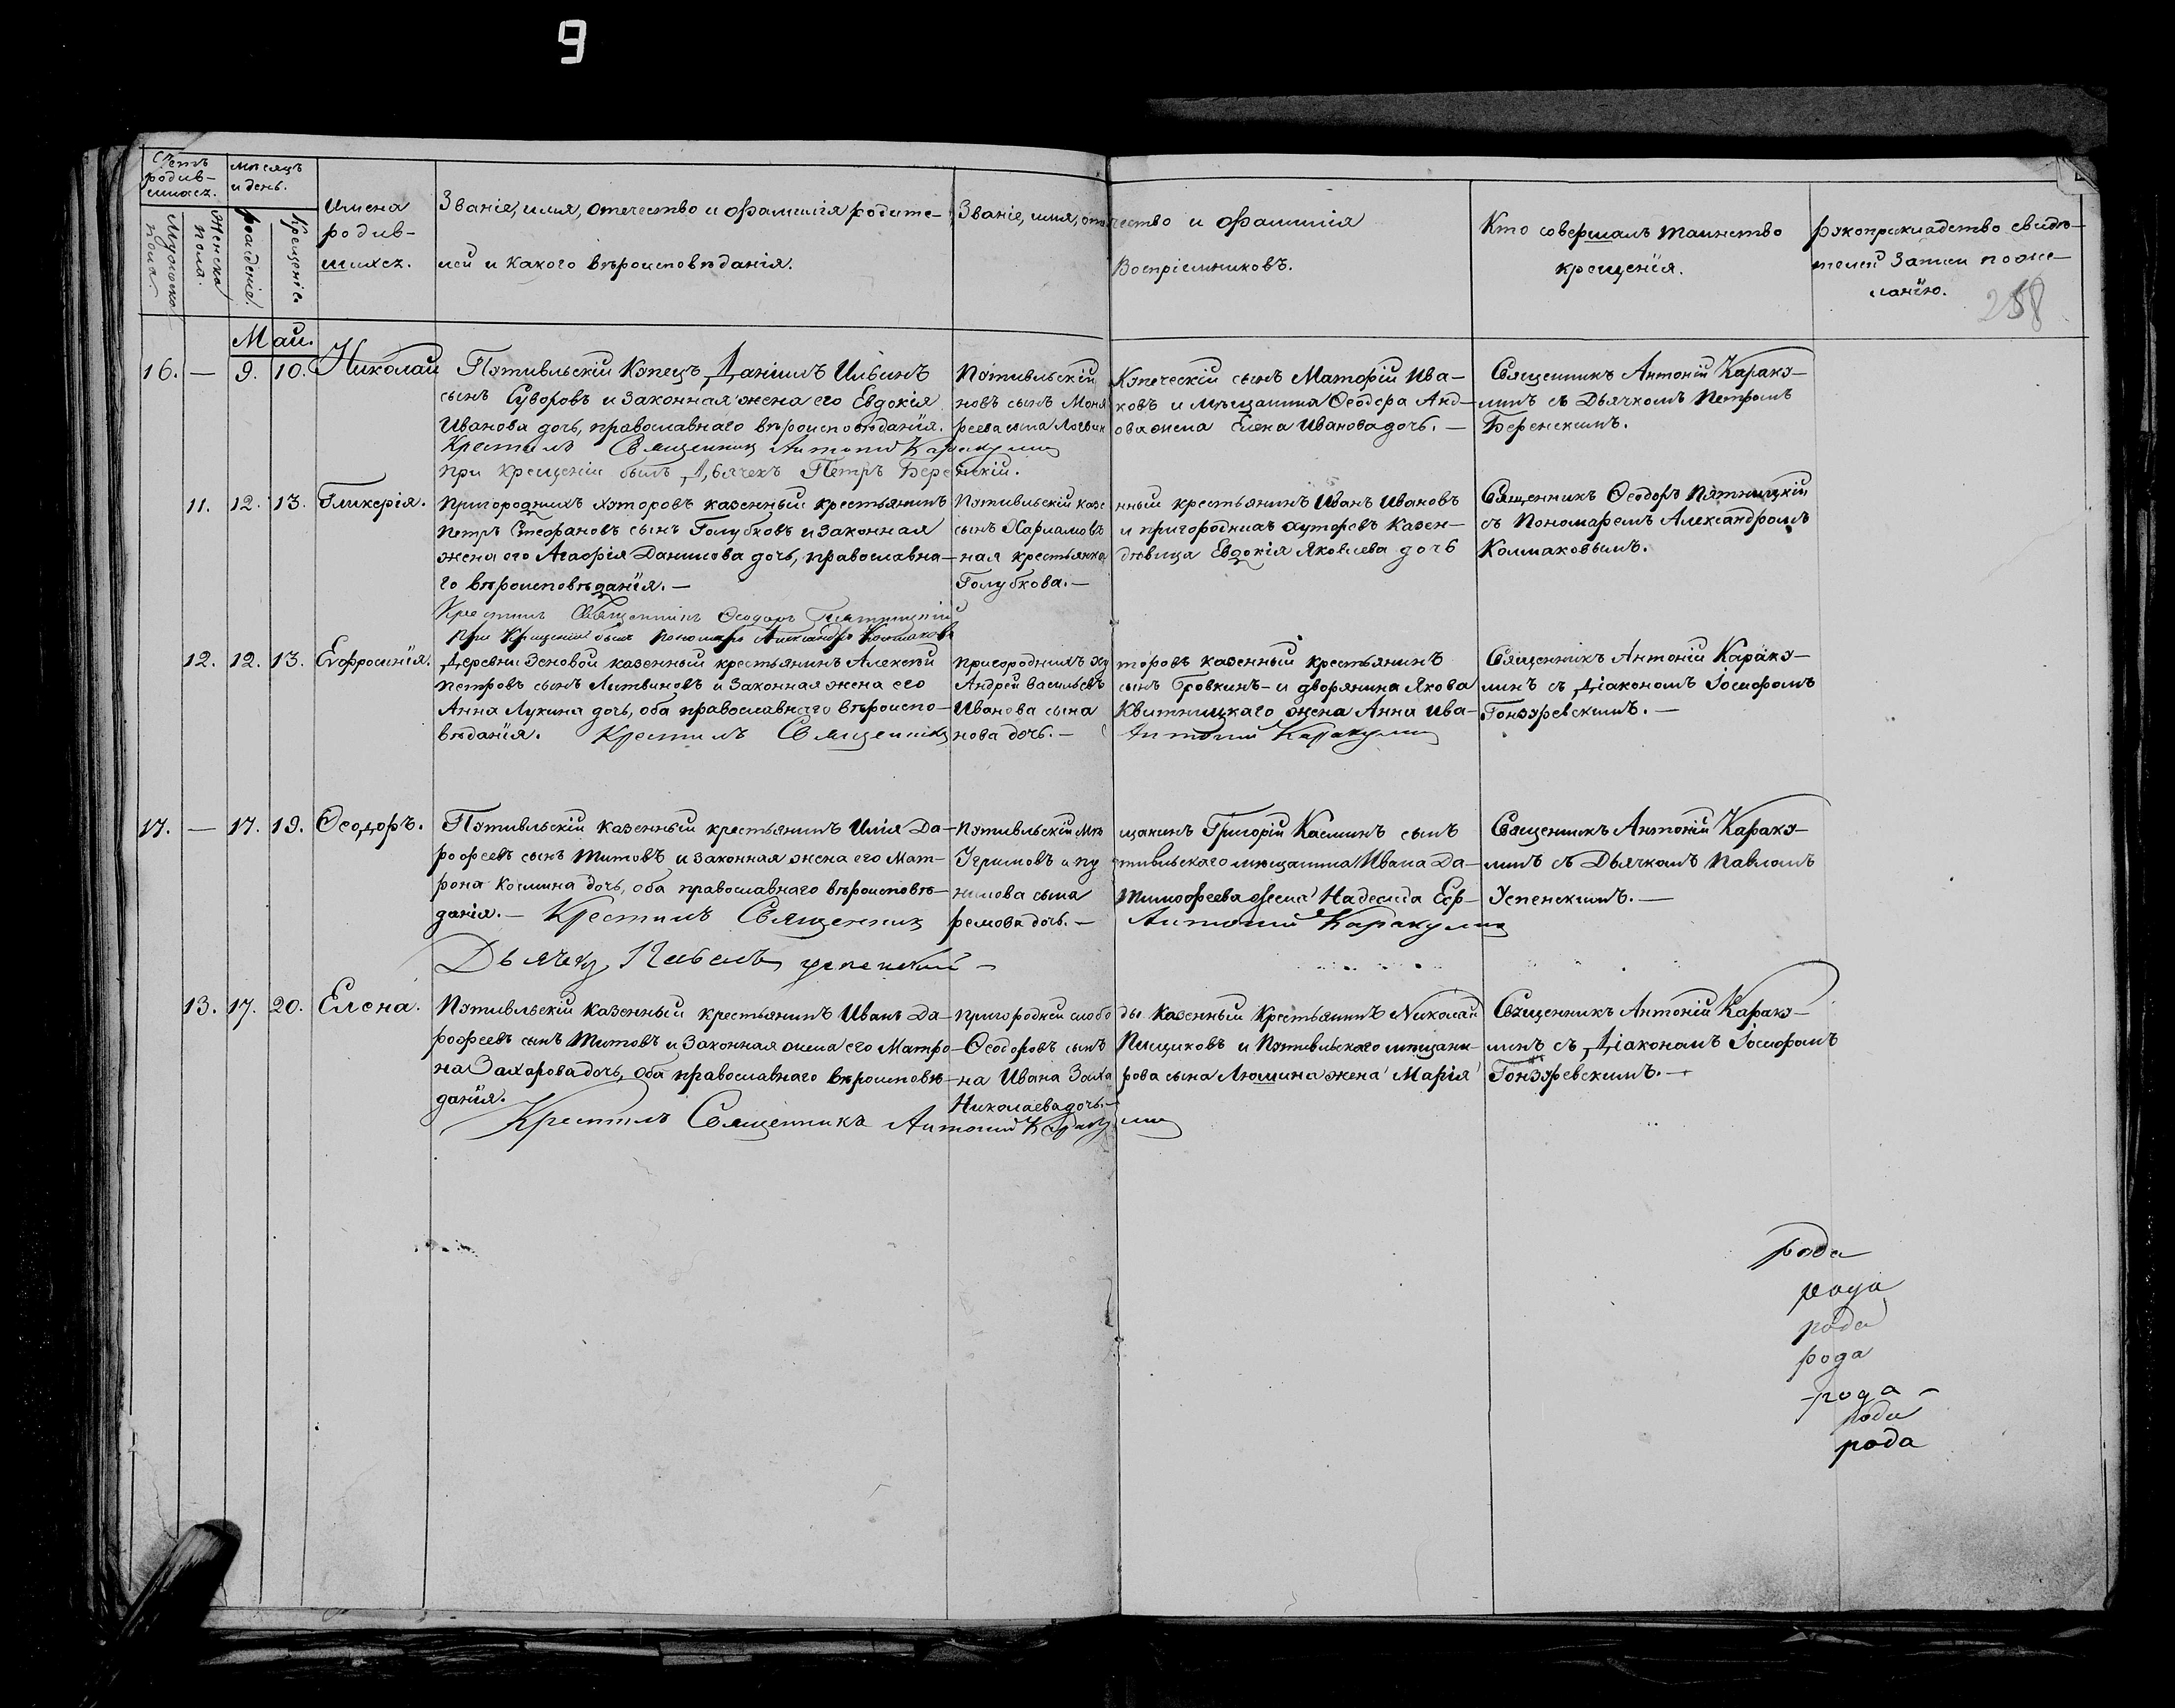 9
Счетъ родив-
шихся.
Мужеска пола.
Женска пола.
Мѣсяцъ
и день.
рожденіе.
крещеніе
Имена
родив-
шихся.
Званіе, имя, отечество и фамилія родите-
лей и какого вѣроисповѣданія.
Званіе, имя, отечество и фамилія
Воспріемниковъ.
Кто совершалъ таинство
крещенія.
рукоприкладство свидѣ-
телей записи по же-
ланію.
258
Маи.
16. — 9. 10. Николай
Путивльскій Купецъ Даніилъ Ильинъ
сынъ Суворовъ и законная жена его Евдокія
Иванова дочь, православнаго вѣроисповѣданія.
Крестилъ Священникъ Антоній Каракулинъ
при крещеніи былъ Дьячекъ Петръ Беренскій.
Путивльскій Купеческій сынъ Матфій Ива-
новъ сынъ и Мѣщанина Ѳеодора Анд-
реева сына жена Елена Иванова дочь. —
Священникъ Антоній Караку-
линъ съ Дьячкомъ Петромъ
Беренскимъ.
11. 12. 13. Гликерія.
Пригороднихъ хуторовъ казенный крестьянинъ
Петръ Стефановъ сынъ Голубковъ и законная
жена его Агафія Данилова дочь, православна-
го вѣроисповѣданія. —
Крестилъ Священникъ Ѳеодоръ Пятницкій
При Крещеніи былъ Пономарь Александръ Колмаковъ
Путивльскій казенный крестьянинъ Иванъ Ивановъ
сынъ Харламовъ и пригороднихъ хуторовъ казен-
ная крестьянка дѣвица Евдокія Яковлева дочь
Голубкова. —
Священникъ Ѳеодоръ Пятницкій
съ Пономаремъ Александромъ
Колмаковымъ.
12. 12. 13. Евфросинія.
Деревни Зеновой казенный крестьянинъ Алексѣй
Петровъ сынъ Литвиновъ и законная жена его
Анна Лукина дочь, оба православнаго вѣроиспо-
вѣданія. Крестилъ Священникъ Антоній Каракулинъ
Пригороднихъ хуторовъ казенный крестьянинъ
Андрей Васильевъ сынъ Гровкинъ и дворянина Якова
Иванова сына Квитницкаго жена Анна Ива-
нова дочь. —
Священникъ Антоній Караку-
линъ съ Діакономъ Іосифомъ
Гонзуревскимъ. —
17. — 17. 19. Ѳеодоръ.
Путивльскій казенный крестьянинъ Илія До-
рофеевъ сынъ Титовъ и законная жена его Мат-
рона Космина дочь, оба православнаго вѣроисповѣ-
данія. — Крестилъ Священникъ Антоній Каракулинъ
Дьячекъ Павелъ Успенскій —
Путивльскій Мѣщанинъ Григорій Касминъ сынъ
Угримовъ и путивльскаго мѣщанина Ивана Да-
нилова сына Тимофеева жена Надежда Еф-
ремова дочь. —
Священникъ Антоній Караку-
линъ съ Дьячкомъ Павломъ
Успенскимъ. —
13. 17. 20. Елена.
Путивльскій казенный крестьянинъ Иванъ До-
рофеевъ сынъ Титовъ и законная жена его Матро-
на Захарова дочь, оба православнаго вѣроисповѣ-
данія.
Крестилъ Священникъ Антоній Каракулинъ
Пригородней слободы казенный Крестьянинъ Николай
Ѳеодоровъ сынъ Пищиковъ и Путивльскаго мѣщани-
на Ивана Захарова сына Люшина жена Марія
Николаева дочь. —
Священникъ Антоній Караку-
линъ съ Діакономъ Іосифомъ
Гонзуревскимъ. —
рода
рода
рода
рода
рода —
рода
рода